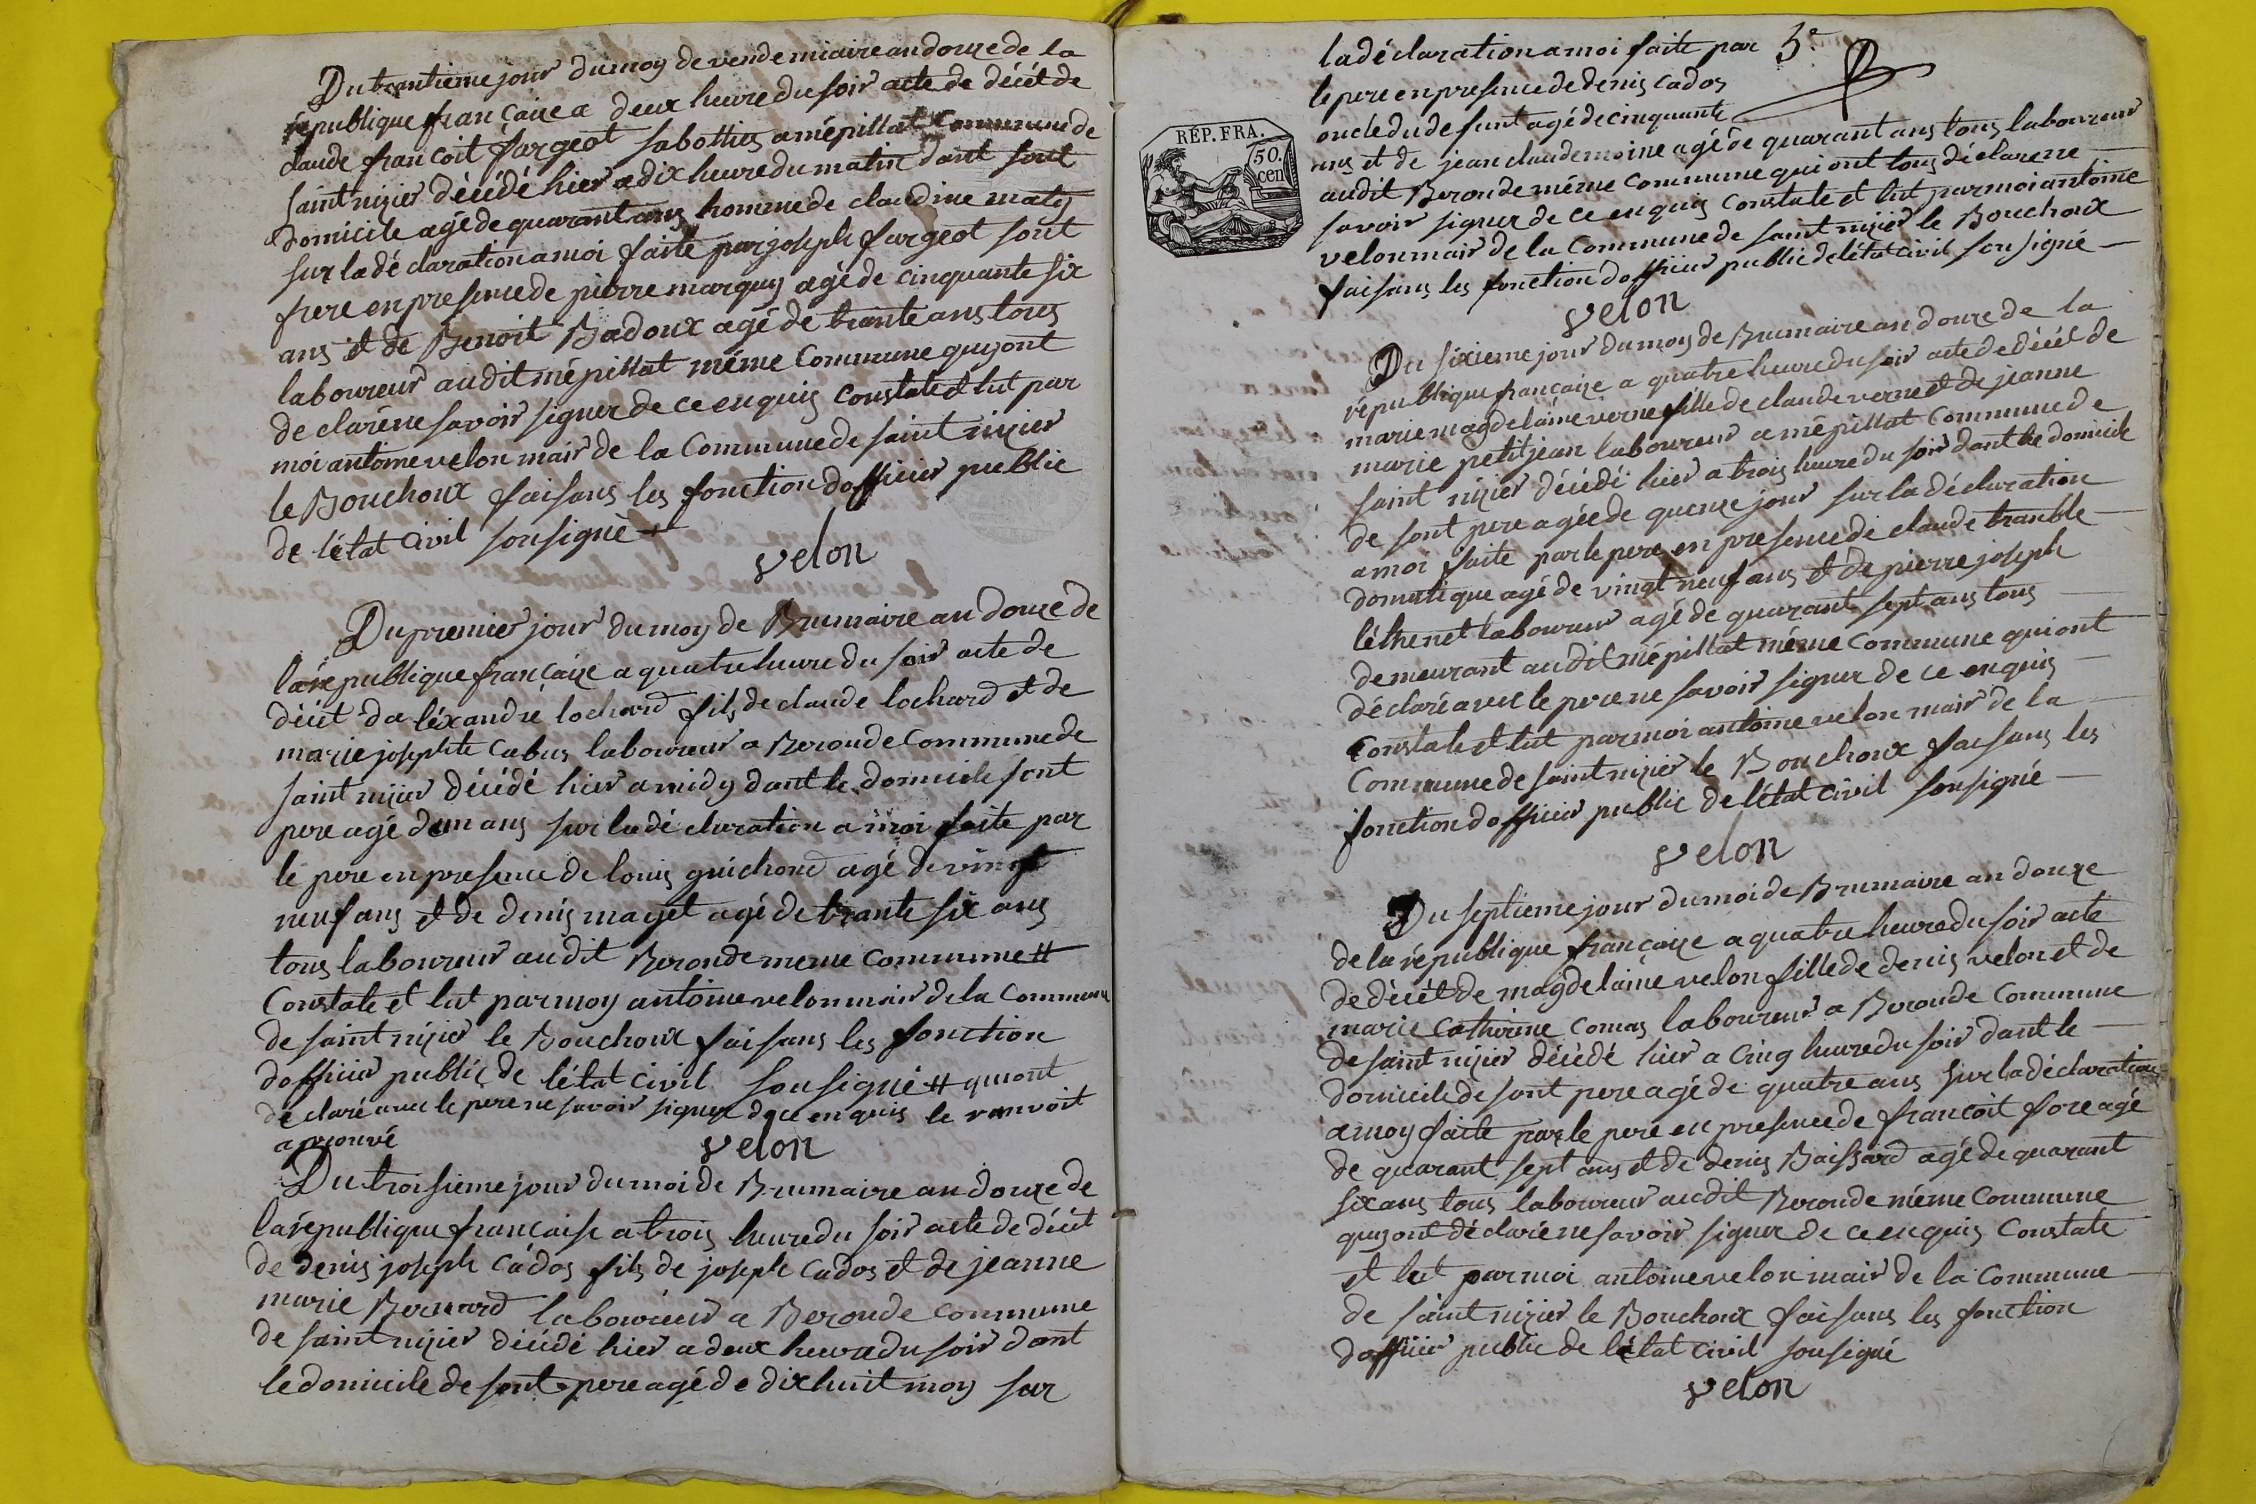 Du trantieme jour du moy de vendemiaire an douze de la
république françaize a deux heure du soir acte de décét de
claude francoit fargeot sabottier a mépillat Commune de
saint nizier décédé hier a dix heure du matin dant sont
domicile agé de quarant ans homme de claudine maty
sur la dé claration a moi faite par joseph fargeot sont
frere en presence de pierre marguy agé de cinquante six
ans et de Benoit Badoux agé de trante ans tous
laboureur au dit mépillat méme Commune quy ont
de claré ne savoir signer de ce enquis Constate et lut par
moi antoine velon mair de la Commune de saint nizier
le Bouchoux faisans les fonction dofficier public
de l'état Civil sousigné
velon
Du premier jour du moy de Brumaire an douze de
la république françaize a quatre heure du soir acte de
décét da léxandre lochard fils de claude lochard et de
marie josephte Cabus laboureur a Beronde Commune de
saint nizier décédé hier a midy dant le domicile sont
pere agé dun ans sur la dé claration a moi faite par
le pere en presence de louis guichond agé de vingt
neuf ans et de denis mayet agé de trante six ans
tous laboureur au dit Beronde meme Commune #
Constate et lut par moy antoine velon mair de la Commune
de saint nizier le Bouchoux faisans les fonction
dofficier public de l'état Civil sousigné # qui ont
de claré avec le pere ne savoir signer de ce enquis le ranvoit
aprouvé
velon
Du troisieme jour du moi de Brumaire an douze de
la république française a trois heure du soir acte de décét
de denis joseph Cados fils de joseph Cados et de jeanne
marie Bernard laboureur a Beronde Commune
de saint nizier décédé hier a deux heure du soir dant
le domicile de sont pere agé de dix huit moy sur
3e
la dé claration a moi faite par
le pere en presence de denis cados
oncle du defunt agé de cinquante
ans et de jean claude moine agé de quarant ans tous laboureur
REP. FRA.
50. cen
audit Beronde méme Commune qui ont tous déclaré ne
savoir signer de ce enquis Constate et lut par moi antoine
velon mair de la Commune de saint nizier le Bouchoux
faisans les fonction dofficier public de l'état Civil sousigné
velon
Du sixieme jour du moy de Brumaire an douze de la
république françaize a quatre heure du soir acte de décét de
marie magdelaine verne fille de claude verne et de jeanne
marie petitjean laboureur a mépillat Commune de
saint nizier décédé hier a trois heure du soir dant le domicile
de sont pere agée de quenze jour sur la déclaration
a moi faite par le pere en presence de claude tranble
domestique agé de vingt neuf ans et de pierre joseph
léthenet laboureur agé de quarant sept ans tous
demeurant au dit mépillat méme Commune qui ont
déclaré avec le pere ne savoir signer de ce enquis
Constate et lut par moi antoine velon mair de la
Commune de saint nizier le Bouchoux faisans les
fonction dofficier public de l'état Civil sousigné
velon
Du septieme jour du moi de Brumaire an douze
de la république françaize a quatre heure du soir acte
de décét de magdelaine velon fille de denis velon et de
marie Catherine Comas laboureur a Beronde Commune
de saint nizier décédé hier a Cinq heure du soir dant le
domicile de sont pere agé de quatre ans sur la déclaration
a moy faite par le pere en presence de francoit fore agé
de quarant sept ans et de denis Baissard agé de quarant
six ans tous laboureur au dit Beronde méme Commune
quy ont déclaré ne savoir signer de ce enquis Constate
et lut par moi antoine velon mair de la Commune
de saint nizier le Bouchoux faisans les fonction
dofficier public de l'état Civil sousigné
velon